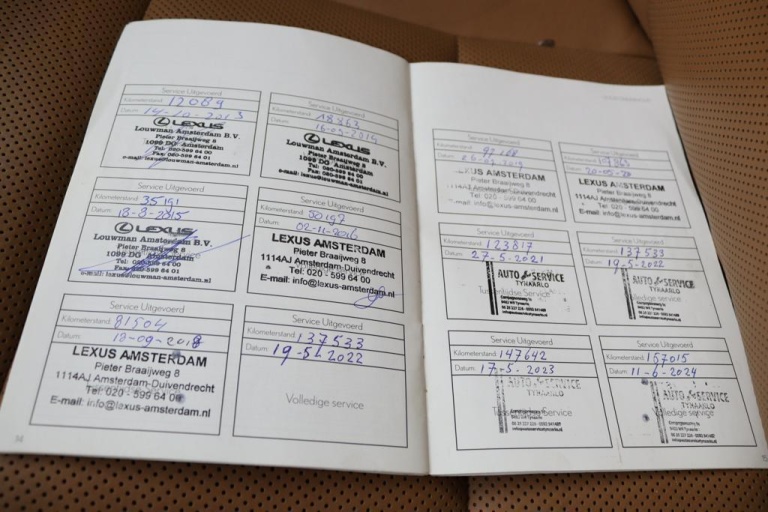 Service Uitgevoerd
Kilometerstand 12089
Datum
LEXUS
Louwman Amsterdam B.V.
Pieter Braaijweg 8
1099 DG Amsterdam
Tel: 020-599 64 00
Fax: 020-599 64 01
e-mail: lexus@louwman-amsterdam.nl
Service Uitgevoerd
Kilometerstand
Datum
LEXUS
Louwman Amsterdam B.V.
Pieter Braaijweg 8
1099 DG Amsterdam
Tel: 020-599 64 00
Fax: 020-599 64 01
e-mail: lexus@louwman-amsterdam.nl
Service Uitgevoerd
Kilometerstand 35191
Datum 18-8-2015
LEXUS
Louwman Amsterdam B.V.
Pieter Braaijweg 8
1099 DG Amsterdam
Tel: 020-599 64 00
Fax: 020-599 64 01
e-mail: lexus@louwman-amsterdam.nl
Service Uitgevoerd
Kilometerstand 50197
Datum 02-11-2016
LEXUS AMSTERDAM
Pieter Braaijweg 8
1114AJ Amsterdam-Duivendrecht
Tel: 020 - 599 64 00
E-mail: info@lexus-amsterdam.nl
Service Uitgevoerd
Kilometerstand 81504
Datum 18-09-2018
LEXUS AMSTERDAM
Pieter Braaijweg 8
1114AJ Amsterdam-Duivendrecht
Tel: 020 - 599 64 00
E-mail: info@lexus-amsterdam.nl
Service Uitgevoerd
Kilometerstand 137533
Datum 19-5-2022
Volledige service
34
Service Uitgevoerd
Kilometerstand
Datum
LEXUS AMSTERDAM
Pieter Braaijweg 8
1114AJ Amsterdam-Duivendrecht
Tel: 020 - 599 64 00
E-mail: info@lexus-amsterdam.nl
Service Uitgevoerd
Kilometerstand
Datum
LEXUS AMSTERDAM
Pieter Braaijweg 8
Amsterdam-Duivendrecht
Tel: 020 - 599 64 00
info@lexus-amsterdam.nl
Service Uitgevoerd
Kilometerstand 123817
Datum 27-5-2021
AUTO SERVICE
TYNAARLO
Service Uitgevoerd
Kilometerstand 137533
Datum 19-5-2022
AUTO SERVICE
TYNAARLO
Volledige service
Service Uitgevoerd
Kilometerstand 147642
Datum 17-5-2023
AUTO SERVICE
TYNAARLO
Service Uitgevoerd
Kilometerstand 157015
Datum 11-6-2024
AUTO SERVICE
TYNAARLO
Volledige service